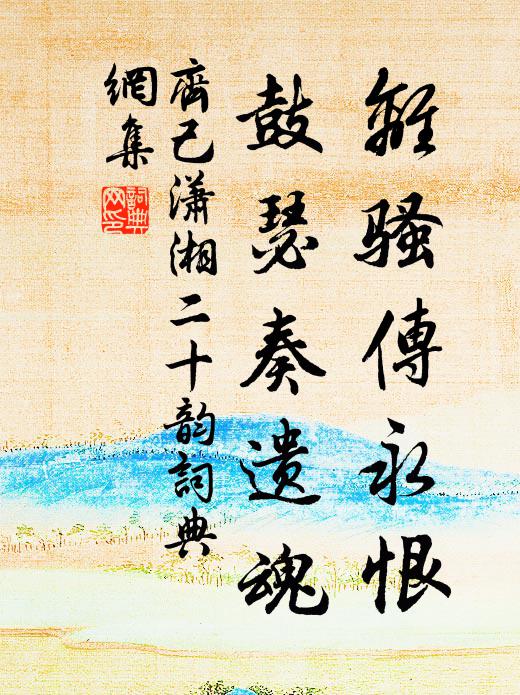 離騷傳永恨
鼓瑟奏遺魂
齊己瀟湘二十韵詞典
網集
詞典
网印